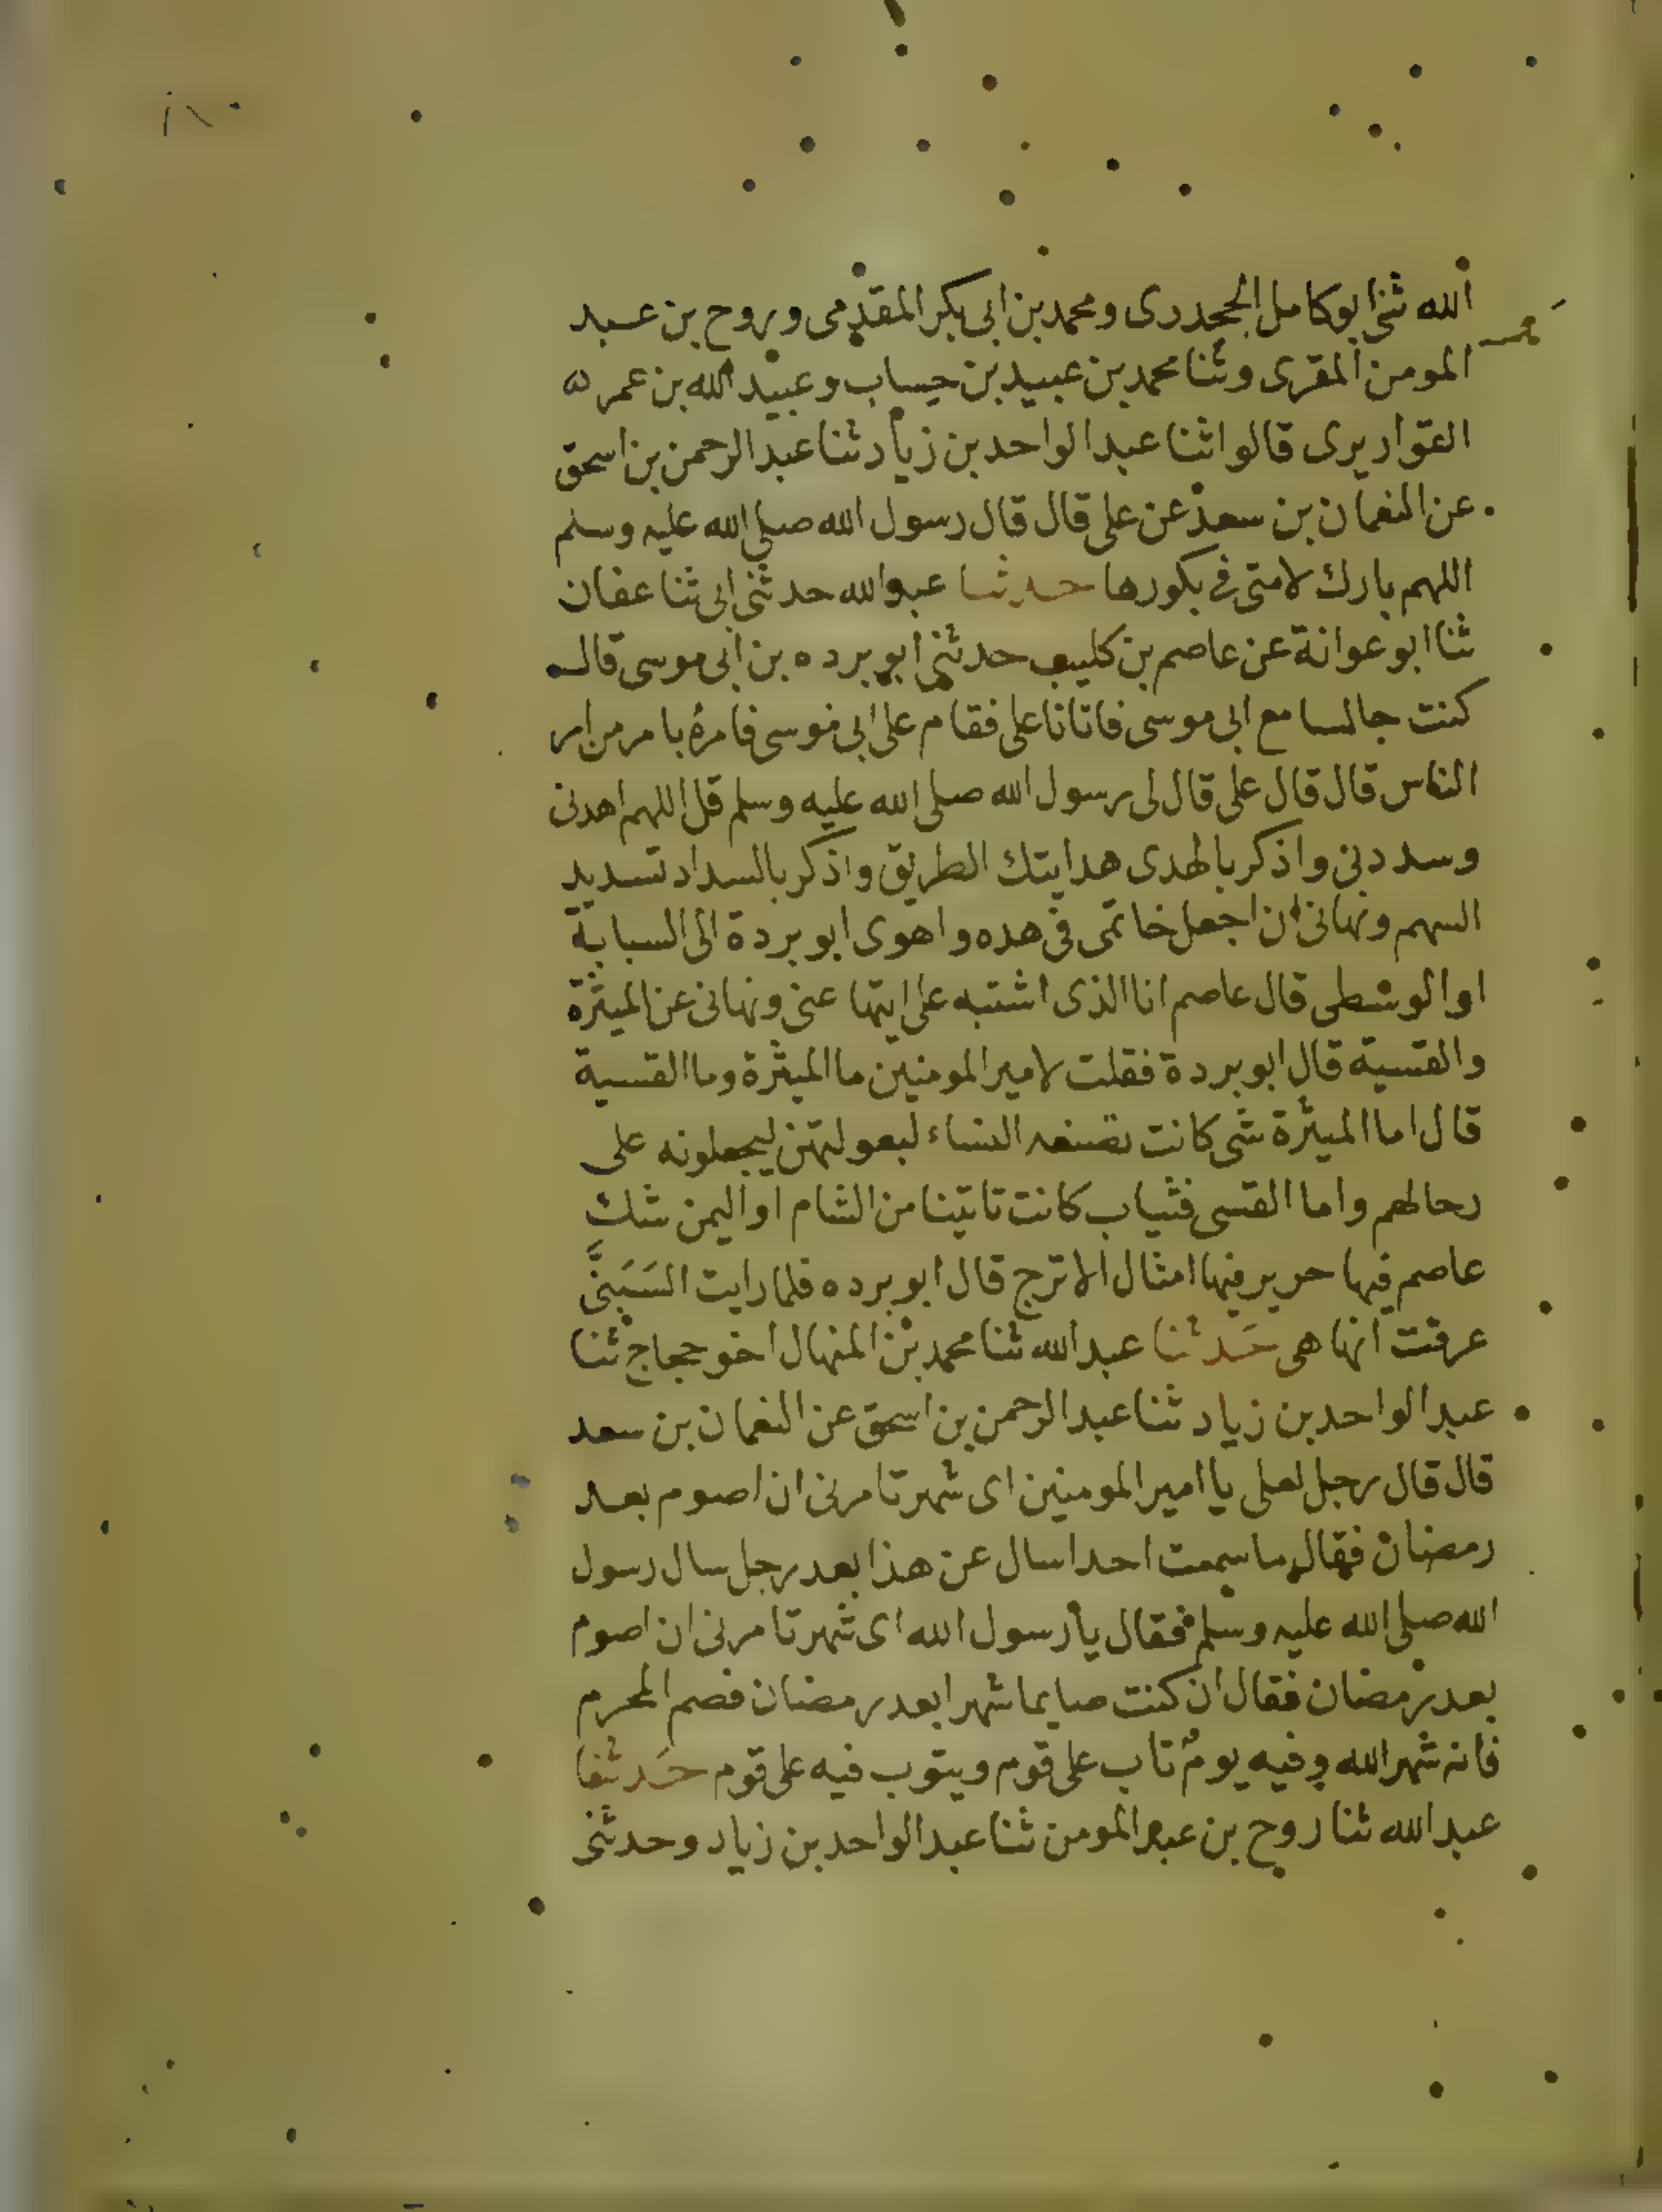 ١٨٠
الله ثنى ابو كامل الجحدرى ومحمد بن ابى بكر المقدمى وروح بن عبد
المومن المقرى وثنا محمد بن عبيد بن حساب وعبيد الله بن عمر
القواريرى قالوا ثنا عبد الواحد بن زياد ثنا عبد الرحمن بن اسحق
عن النعمان بن سعد عن على قال قال رسول الله صلى الله عليه وسلم
اللهم بارك لامتى فى بكورها حدثنا عبد الله حدثنى ابى ثنا عفان
ثنا ابو عوانة عن عاصم بن كليب حدثنى ابو برده بن ابى موسى قال
كنت جالسا مع ابى موسى فاتانا على فقام على ابى موسى فامره بامر من امر
الناس قال قال على قال لى رسول الله صلى الله عليه وسلم قل اللهم اهدنى
وسددنى واذكر بالهدى هدايتك الطريق واذكر بالسداد تسديد
السهم ونهانى ان اجعل خاتمى فى هذه واهوى ابو بردة الى السبابة
او الوسطى قال عاصم انا الذى اشتبه على ايتها عنى ونهانى عن الميثرة
والقسية قال ابو بردة فقلت لامير المومنين ما الميثرة وما القسية
قال اما الميثرة شى كانت تصنعه النساء لبعولتهن ليجعلونه على
رحالهم واما القسى فثياب كانت تاتينا من الشام او اليمن شك
عاصم فيها حرير فيها امثال الاترج قال ابو برده فلما رايت السَبَنىَّ
عرفت انها هى حدثنا عبد الله ثنا محمد بن المنهال اخو حجاج ثنا
عبد الواحد بن زياد ثنا عبد الرحمن بن اسحق عن النعمان بن سعد
قال قال رجل لعلى يا امير المومنين اى شهر تامرنى ان اصوم بعد
رمضان فقال ما سمعت احدا سال عن هذا بعد رجل سال رسول
الله صلى الله عليه وسلم فقال يا رسول الله اى شهر تامرنى ان اصوم
بعد رمضان فقال ان كنت صايما شهرا بعد رمضان فصم المحرم
فانه شهر الله وفيه يوم تاب على قوم ويتوب فيه على قوم حدثنا
عبد الله ثنا روح بن عبد المومن ثنا عبد الواحد بن زياد وحدثنى